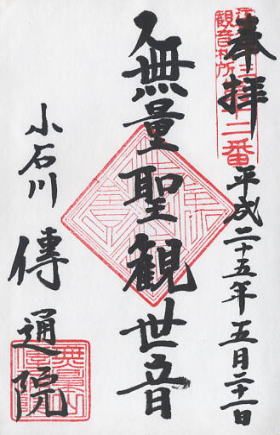 奉拝
観音札所
十二番
平成二十五年五月二十一日
無量聖観世音
小石川
傳通院